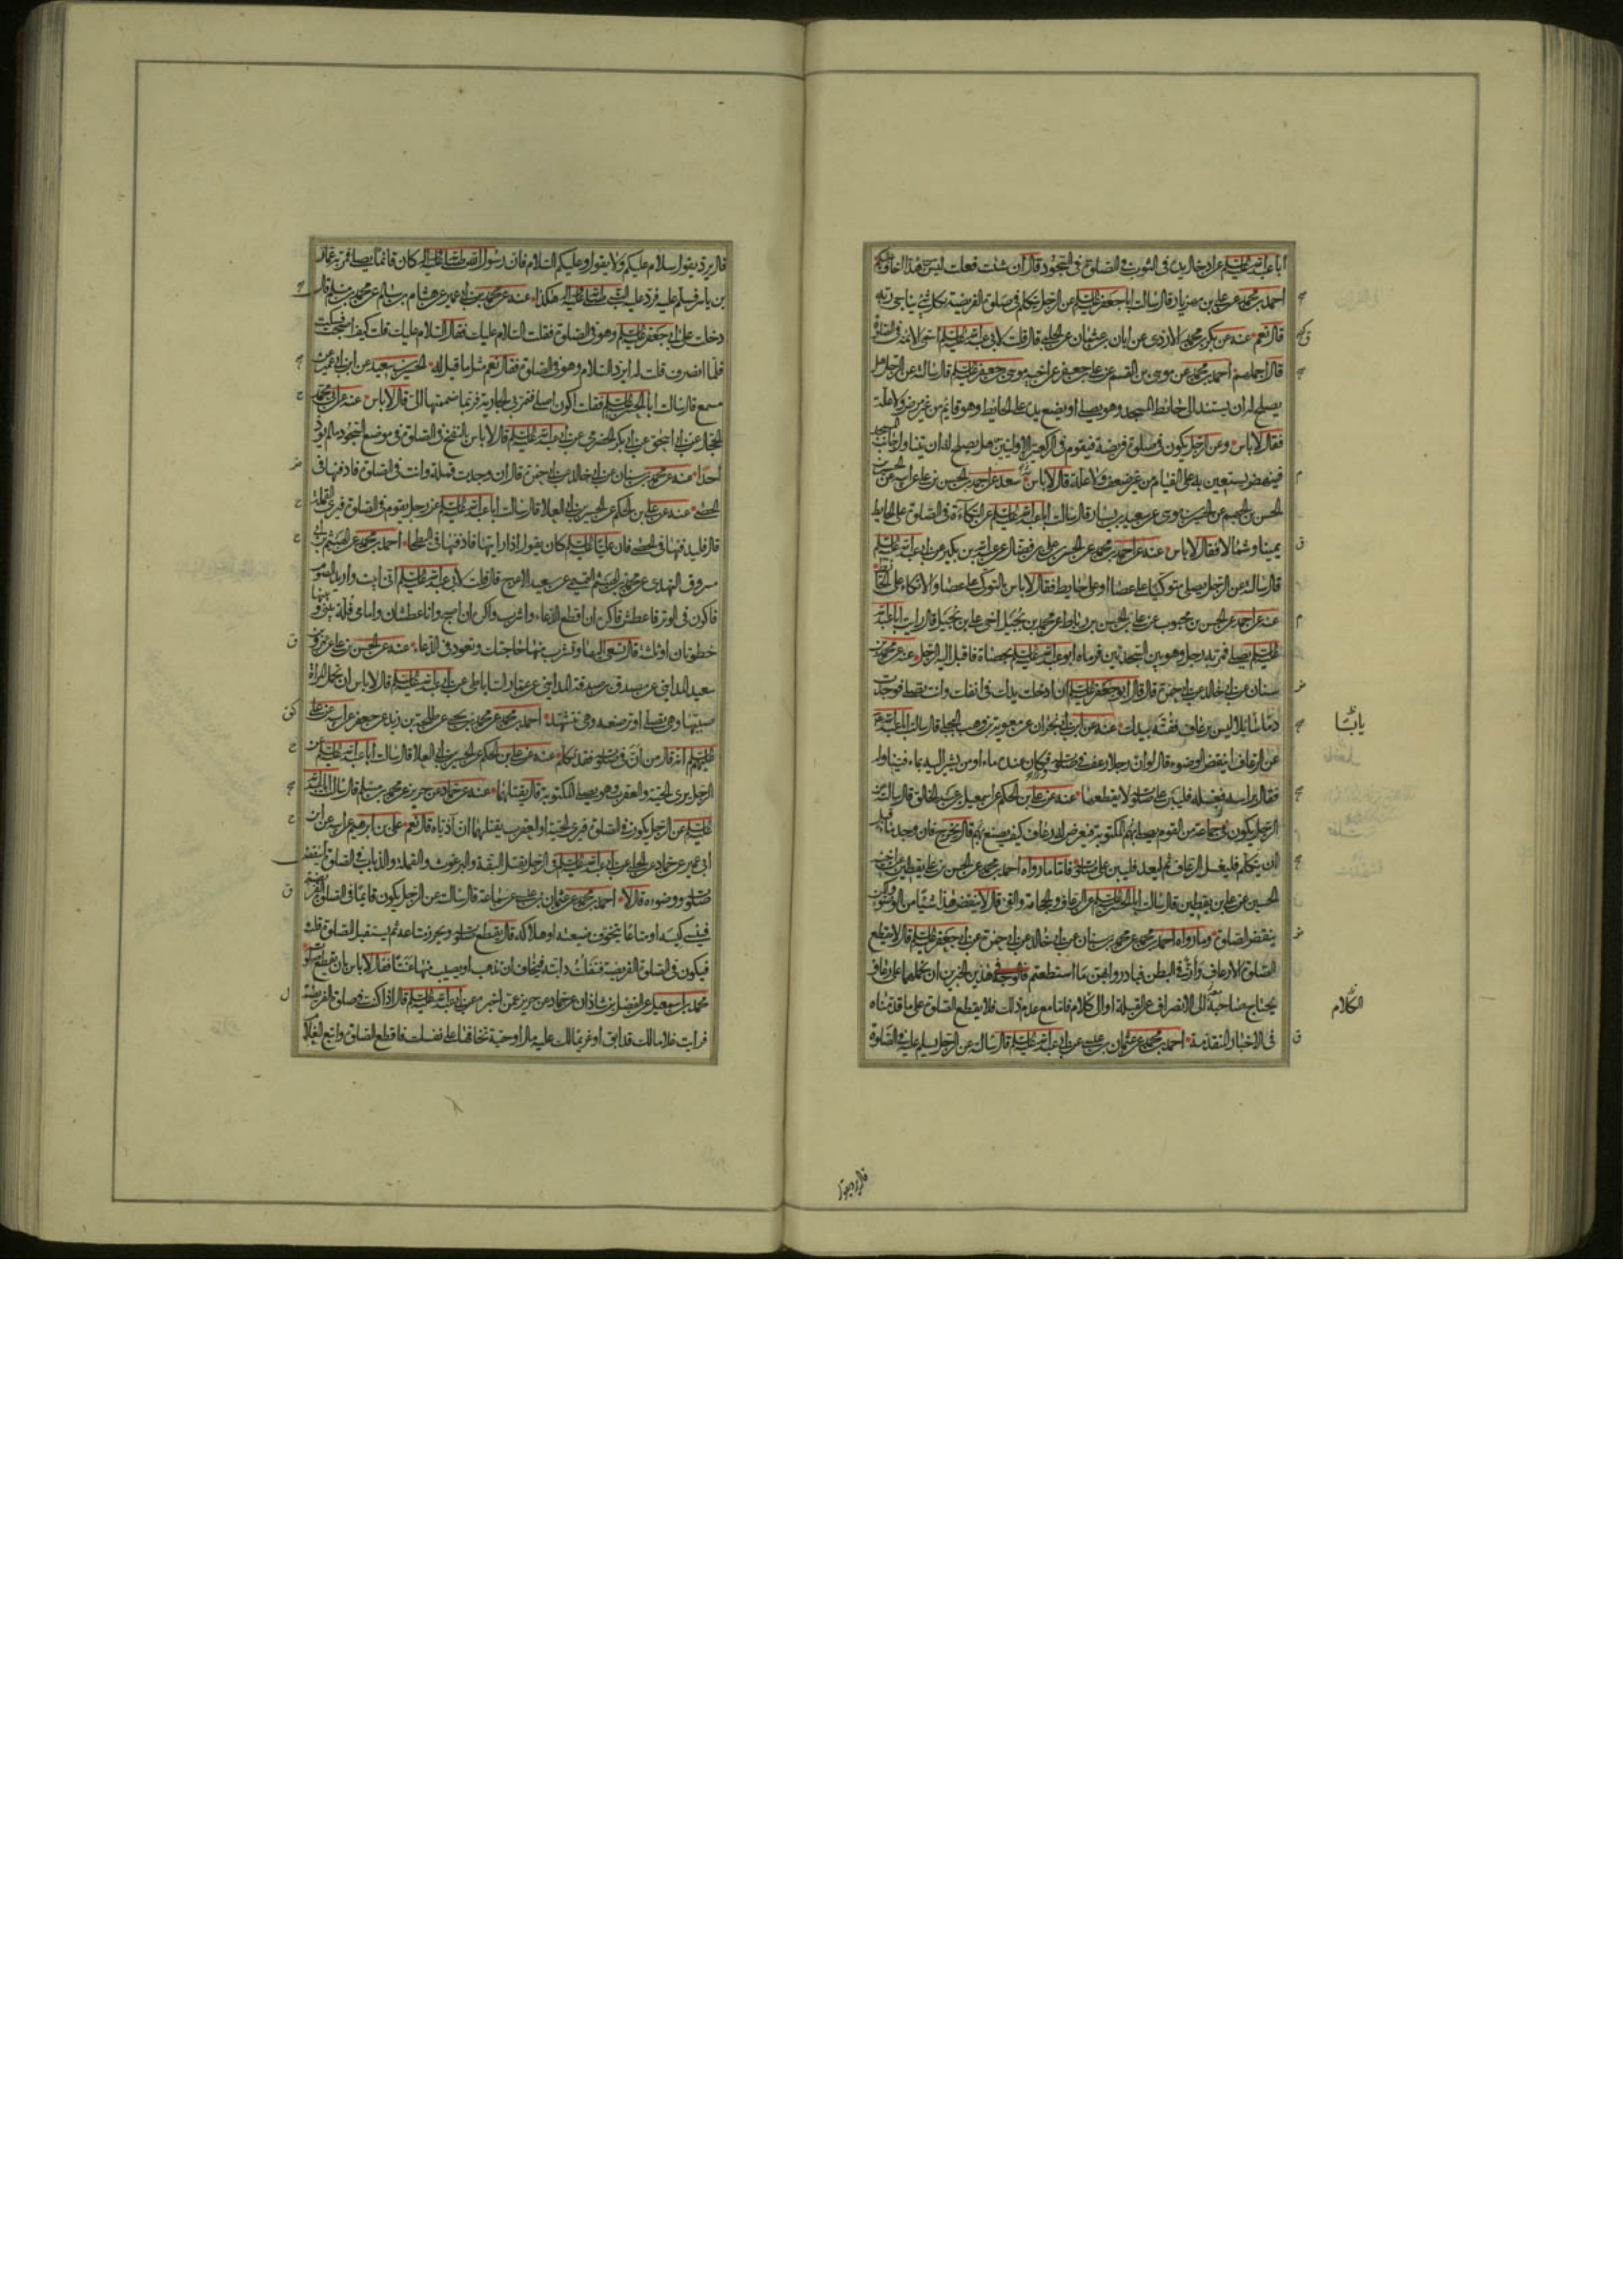 ابا عبد الله عليه السلام عن ادخال يدى فى الثوب فى الصلوة فى السجود قال ان شئت فعلت ليس من هذا اخاف عليكم
احمد بن محمد عن على بن مهزيار قال سالت ابا جعفر عليه السلام عن الرجل يتكلم فى صلوة الفريضة بكل شئ يناجى ربه
قال نعم عنه عن بكر بن محمد الازدى عن ابان بن عثمان عن الحلبى قال قلت لابى عبد الله عليه السلام اسمى الائمة فى الصلوة
قال اجملهم احمد بن محمد عن موسى بن القسم عن على بن جعفر عن اخيه موسى بن جعفر عليه السلام قال سالته عن الرجل هل
يصلح له ان يستند الى حائط المسجد وهو يصلى او يضع يده على الحايط وهو قائم من غير مرض ولا علة
فقال لا باس وعن الرجل يكون فى صلوة فريضة فيقوم فى الركعتين الاوليين هل يصلح له ان يتناول جانب المسجد
فينهض يستعين به على القيام من غير ضعف ولا علة قال لا باس سعد عن احمد بن الحسن بن على عن ابيه عن
الحسن بن الجهم عن الحسين بن موسى عن سعيد بن يسار قال سالت ابا عبد الله عليه السلام عن التكاءة فى الصلوة على الحايط
يمينا وشمالا فقال لا باس عنه عن احمد بن محمد عن الحسن بن على بن فضال عن عبد الله بن بكير عن ابى عبد الله عليه السلام
قال سالته عن الرجل يصلى متوكيا على عصا او على حايط فقال لا باس بالتوكى على عصا والاتكاء على الحائط
عنه عن احمد عن الحسن بن محبوب عن على بن الحسن بن رباط عن محمد بن بجيل اخى على بن بجيل قال رايت ابا عبد الله
عليه السلام يصلى فمر به رجل وهو بين السجدتين فرماه ابو عبد الله عليه السلام بحصاة فاقبل اليه الرجل عنه عن محمد بن
سنان عن ابى خالد عن ابى حمزة قال قال ابو جعفر عليه السلام ان ادخلت يدك فى انفك وانت تصلى فوجدت
دما سائلا ليس برعاف ففته بيدك عنه عن ابن ابى نجران عن معوية بن وهب البجلى قال سالت ابا عبد الله
عن الرعاف اينقض الوضوء قال لو ان رجلا رعف فى صلوته فكان عنده ماء او من يشير اليه بماء فيناوله
فقال براسه فيغسله فليبن على صلوته لا يقطعها عنه عن على بن الحكم عن اسمعيل بن عبد الخالق قال سالته عن
الرجل يكون فى جماعة من القوم يصلى بهم المكتوبة فيعرض له رعاف كيف يصنع بهم قال يخرج فان وجد ماء قبل
ان يتكلم فليغسل الرعاف ثم ليعد فليبن على صلوته فاما ما رواه احمد بن محمد عن الحسن بن على بن يقطين عن اخيه
الحسين عن على بن يقطين قال سالت ابا الحسن عليه السلام عن الرعاف والحجامة والقئ قال لا ينقض هذا شيئا من الوضوء ولكن
ينقض الصلوة وما رواه احمد بن محمد عن محمد بن سنان عن ابى خالد عن ابى حمزة عن ابى جعفر عليه السلام قال لا يقطع
الصلوة الا رعاف وازّ فى البطن فبادروا بهن ما استطعتم فالوجه فى هذين الخبرين ان نحملهما على رعاف
يحتاج صاحبه الى الانصراف عن القبلة او الى كلام فاما مع عدم ذلك فلا يقطع الصلوة على ما قدمناه
فى الاخبار المتقدمة احمد بن محمد عن عثمان بن عيسى عن ابى عبد الله عليه السلام قال سالته عن الرجل يسلم عليه فى الصلوة
الكلام
قال يرد يقول سلام عليكم ولا يقول وعليكم السلام فان رسول الله صلى الله عليه واله كان قائما يصلى فمر به عمار
بن ياسر فسلم عليه فرد عليه النبى صلى الله عليه واله هكذا عنه عن محمد بن ابى عمير عن هشام بن سالم عن محمد بن مسلم قال
دخلت على ابى جعفر عليه السلام وهو فى الصلوة فقلت السلام عليك فقال السلام عليك قلت كيف اصبحت فسكت
فلما انصرف قلت له ايرد السلام وهو فى الصلوة فقال نعم مثل ما قيل له الحسين بن سعيد عن ابن ابى عمير عن
مسمع قال سالت ابا الحسن عليه السلام فقلت اكون اصلى فتمر بى الجارية فربما ضممتها الى قال لا باس عنه عن ابى محمد
الحجال عن ابى اسحق عن ابى بكر الحضرمى عن ابى عبد الله عليه السلام قال لا باس بالنفخ فى الصلوة فى موضع السجود ما لم يوذ
احدا عنه عن محمد بن سنان عن ابى خالد عن ابى حمزة قال ان وجدت قملة وانت فى الصلوة فادفنها فى
الحصى عنه عن على بن الحكم عن الحسين بن ابى العلا قال سالت ابا عبد الله عليه السلام عن رجل يقوم فى الصلوة فيرى القملة
قال فليدفنها فى الحصى فان عليا عليه السلام كان يقول اذا رايتها فادفنها فى البطحا احمد بن محمد عن الهيثم بن ابى
مسروق النهدى عن محمد بن الهيثم التميمى عن سعيد الاعرج قال قلت لابى عبد الله عليه السلام انى ابيت واريد الصوم
فاكون فى الوتر فاعطش فاكره ان اقطع الدعاء واشرب واكره ان اصبح وانا عطشان وامامى قلة بينى وبينها
خطوتان او ثلثة قال تسعى اليها وتشرب منها حاجتك وتعود فى الدعاء عنه عن الحسن بن على عن عمرو بن
سعيد المداينى عن مصدق بن صدقة المداينى عن عمار الساباطى عن ابى عبد الله عليه السلام قال لا باس ان تحمل المراة
صبيها وهى تصلى او ترضعه وهى تتشهد احمد بن محمد عن محمد بن يحيى عن طلحة بن زيد عن جعفر عن ابيه عن على
عليهم السلام انه قال من انّ فى صلوته فقد تكلم عنه عن على بن الحكم عن الحسين بن ابى العلا قال سالت ابا عبد الله عليه السلام عن
الرجل يرى الحية والعقرب وهو يصلى المكتوبة قال يقتلهما عنه عن حماد عن حريز عن محمد بن مسلم قال سالت ابا عبد الله
عليه السلام عن الرجل يكون فى الصلوة فيرى الحية او العقرب يقتلهما ان آذياه قال نعم على بن ابرهيم عن ابيه عن ابن
ابى عمير عن حماد عن الحلبى عن ابى عبد الله عليه السلام فى الرجل يقتل البقة والبرغوث والقملة والذباب فى الصلوة اينقض
صلوته ووضوءه قال لا احمد بن محمد عن عثمان بن عيسى عن سماعة قال سالته عن الرجل يكون قائما فى الصلوة الفريضة
فينسى كيسه او متاعا يتخوف ضيعته او هلاكه قال يقطع صلوته ويحرز متاعه ثم يستقبل الصلوة قلت
فيكون فى الصلوة الفريضة فتفلت دابته فيخاف ان تذهب او يصيب منها عنتا فقال لا باس بان يقطع صلوته
محمد بن اسمعيل عن الفضل بن شاذان عن حماد عن حريز عمن اخبره عن ابى عبد الله عليه السلام قال اذا كنت فى صلوة الفريضة
فرايت غلاما لك قد ابق او غريما لك عليه مال او حية تخافها على نفسك فاقطع الصلوة واتبع الغلام